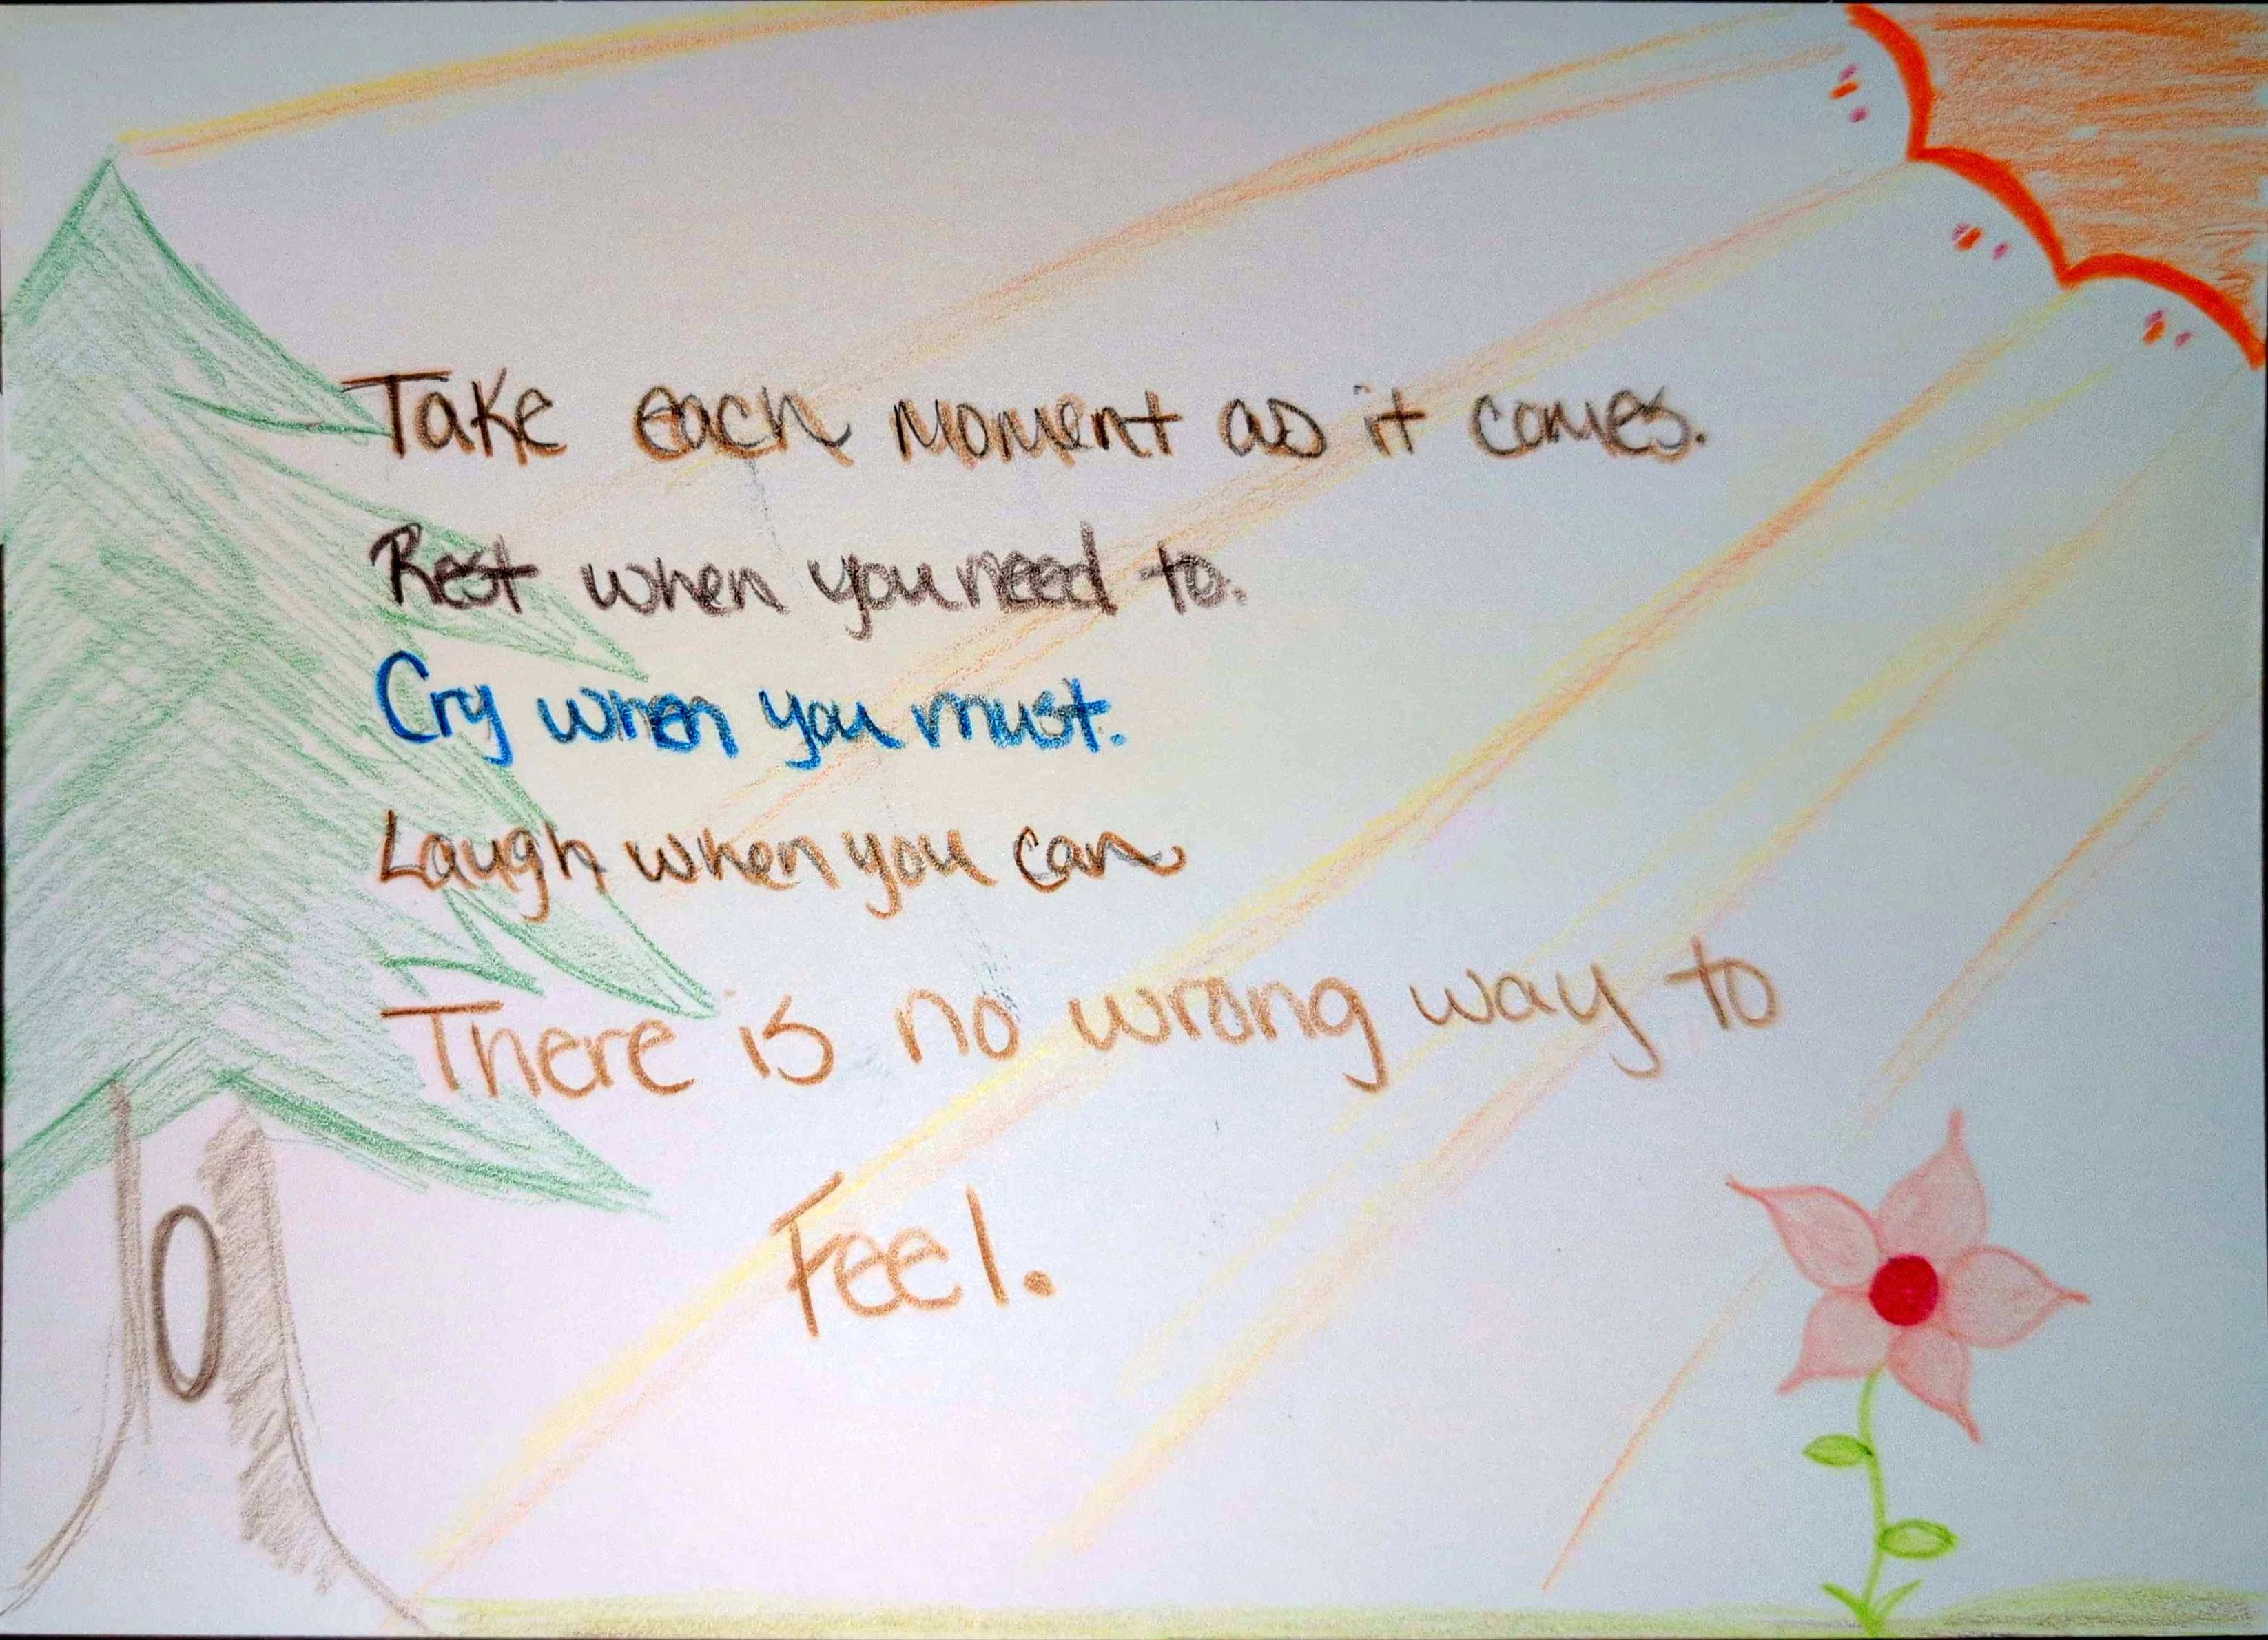 Take each moment as it comes.
Rest when you need to.
Cry when you must.
Laugh when you can
There is no wrong way to
Feel.